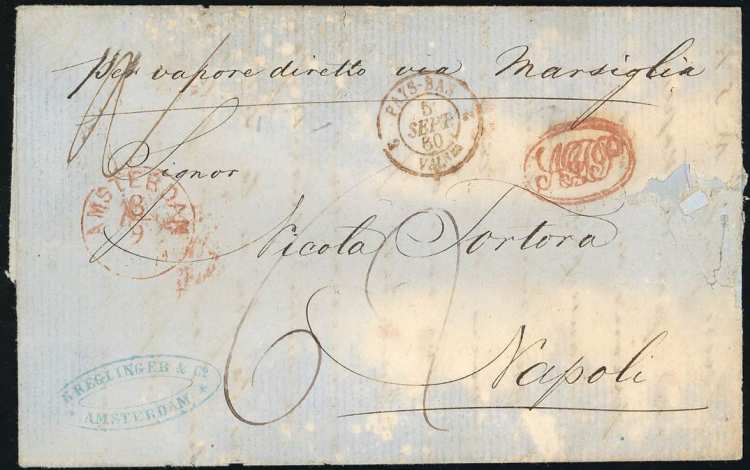 per vapore diretto via Marsiglia
PAYS-BAS
5
SEPT.
60
2
2
VALNES
Signor
AMSTERDAM
9
Nicola Tortora
Napoli
KREGLINGER & Co.
AMSTERDAM.